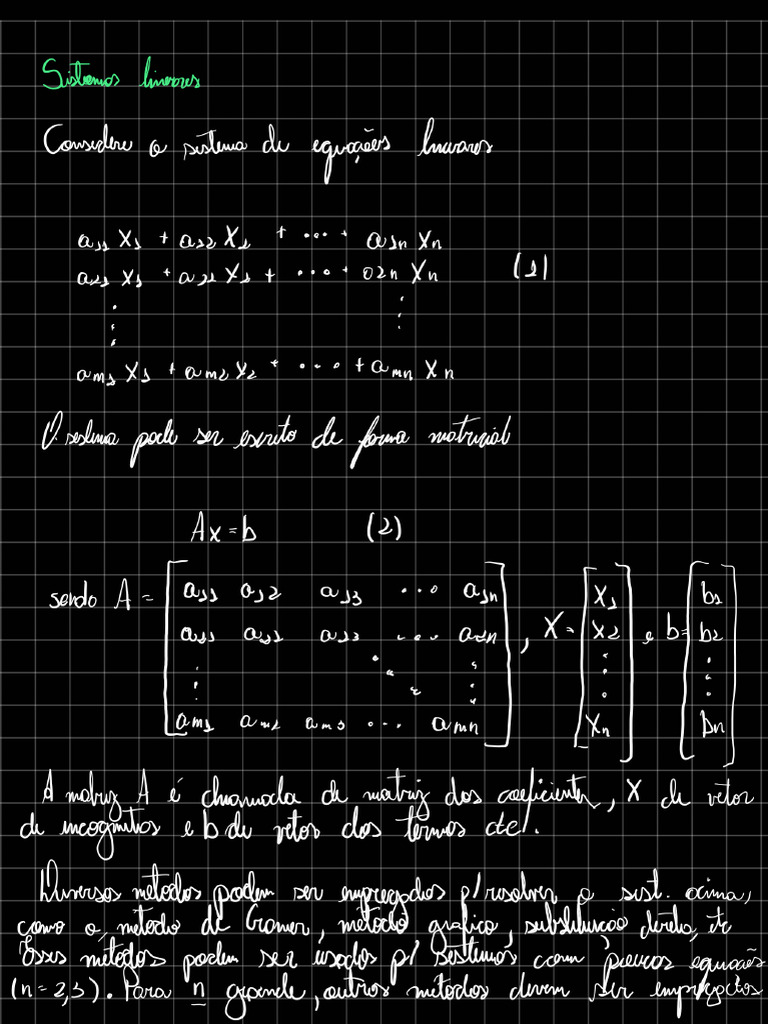 Sistemas lineares
Considere o sistema de equações lineares
a11 X1 + a12 X2 + ... + a1n Xn
a21 X1 + a22 X2 + ... + a2n Xn (1)
⋮ ⋮
am1 X1 + am2 X2 + ... + amn Xn
O sistema pode ser escrito de forma matricial
Ax = b (2)
sendo A = [a11 a12 a13 ... a1n
a21 a22 a23 ... a2n
⋮ ⋱ ⋮
am1 am2 am3 ... amn], X = [X1 X2 ⋮ Xn] e b = [b1 b2 ⋮ bn]
A matriz A é chamada de matriz dos coeficientes, X de vetor
de incognitas e b de vetor dos termos cte.
Diversos métodos podem ser empregados p/ resolver o sist. acima,
como o método de Cramer, método gráfico, substituição direta, etc
Esses métodos podem ser usados p/ sistemas com poucas equações
(n = 2,3). Para n grande, outros métodos devem ser empregados